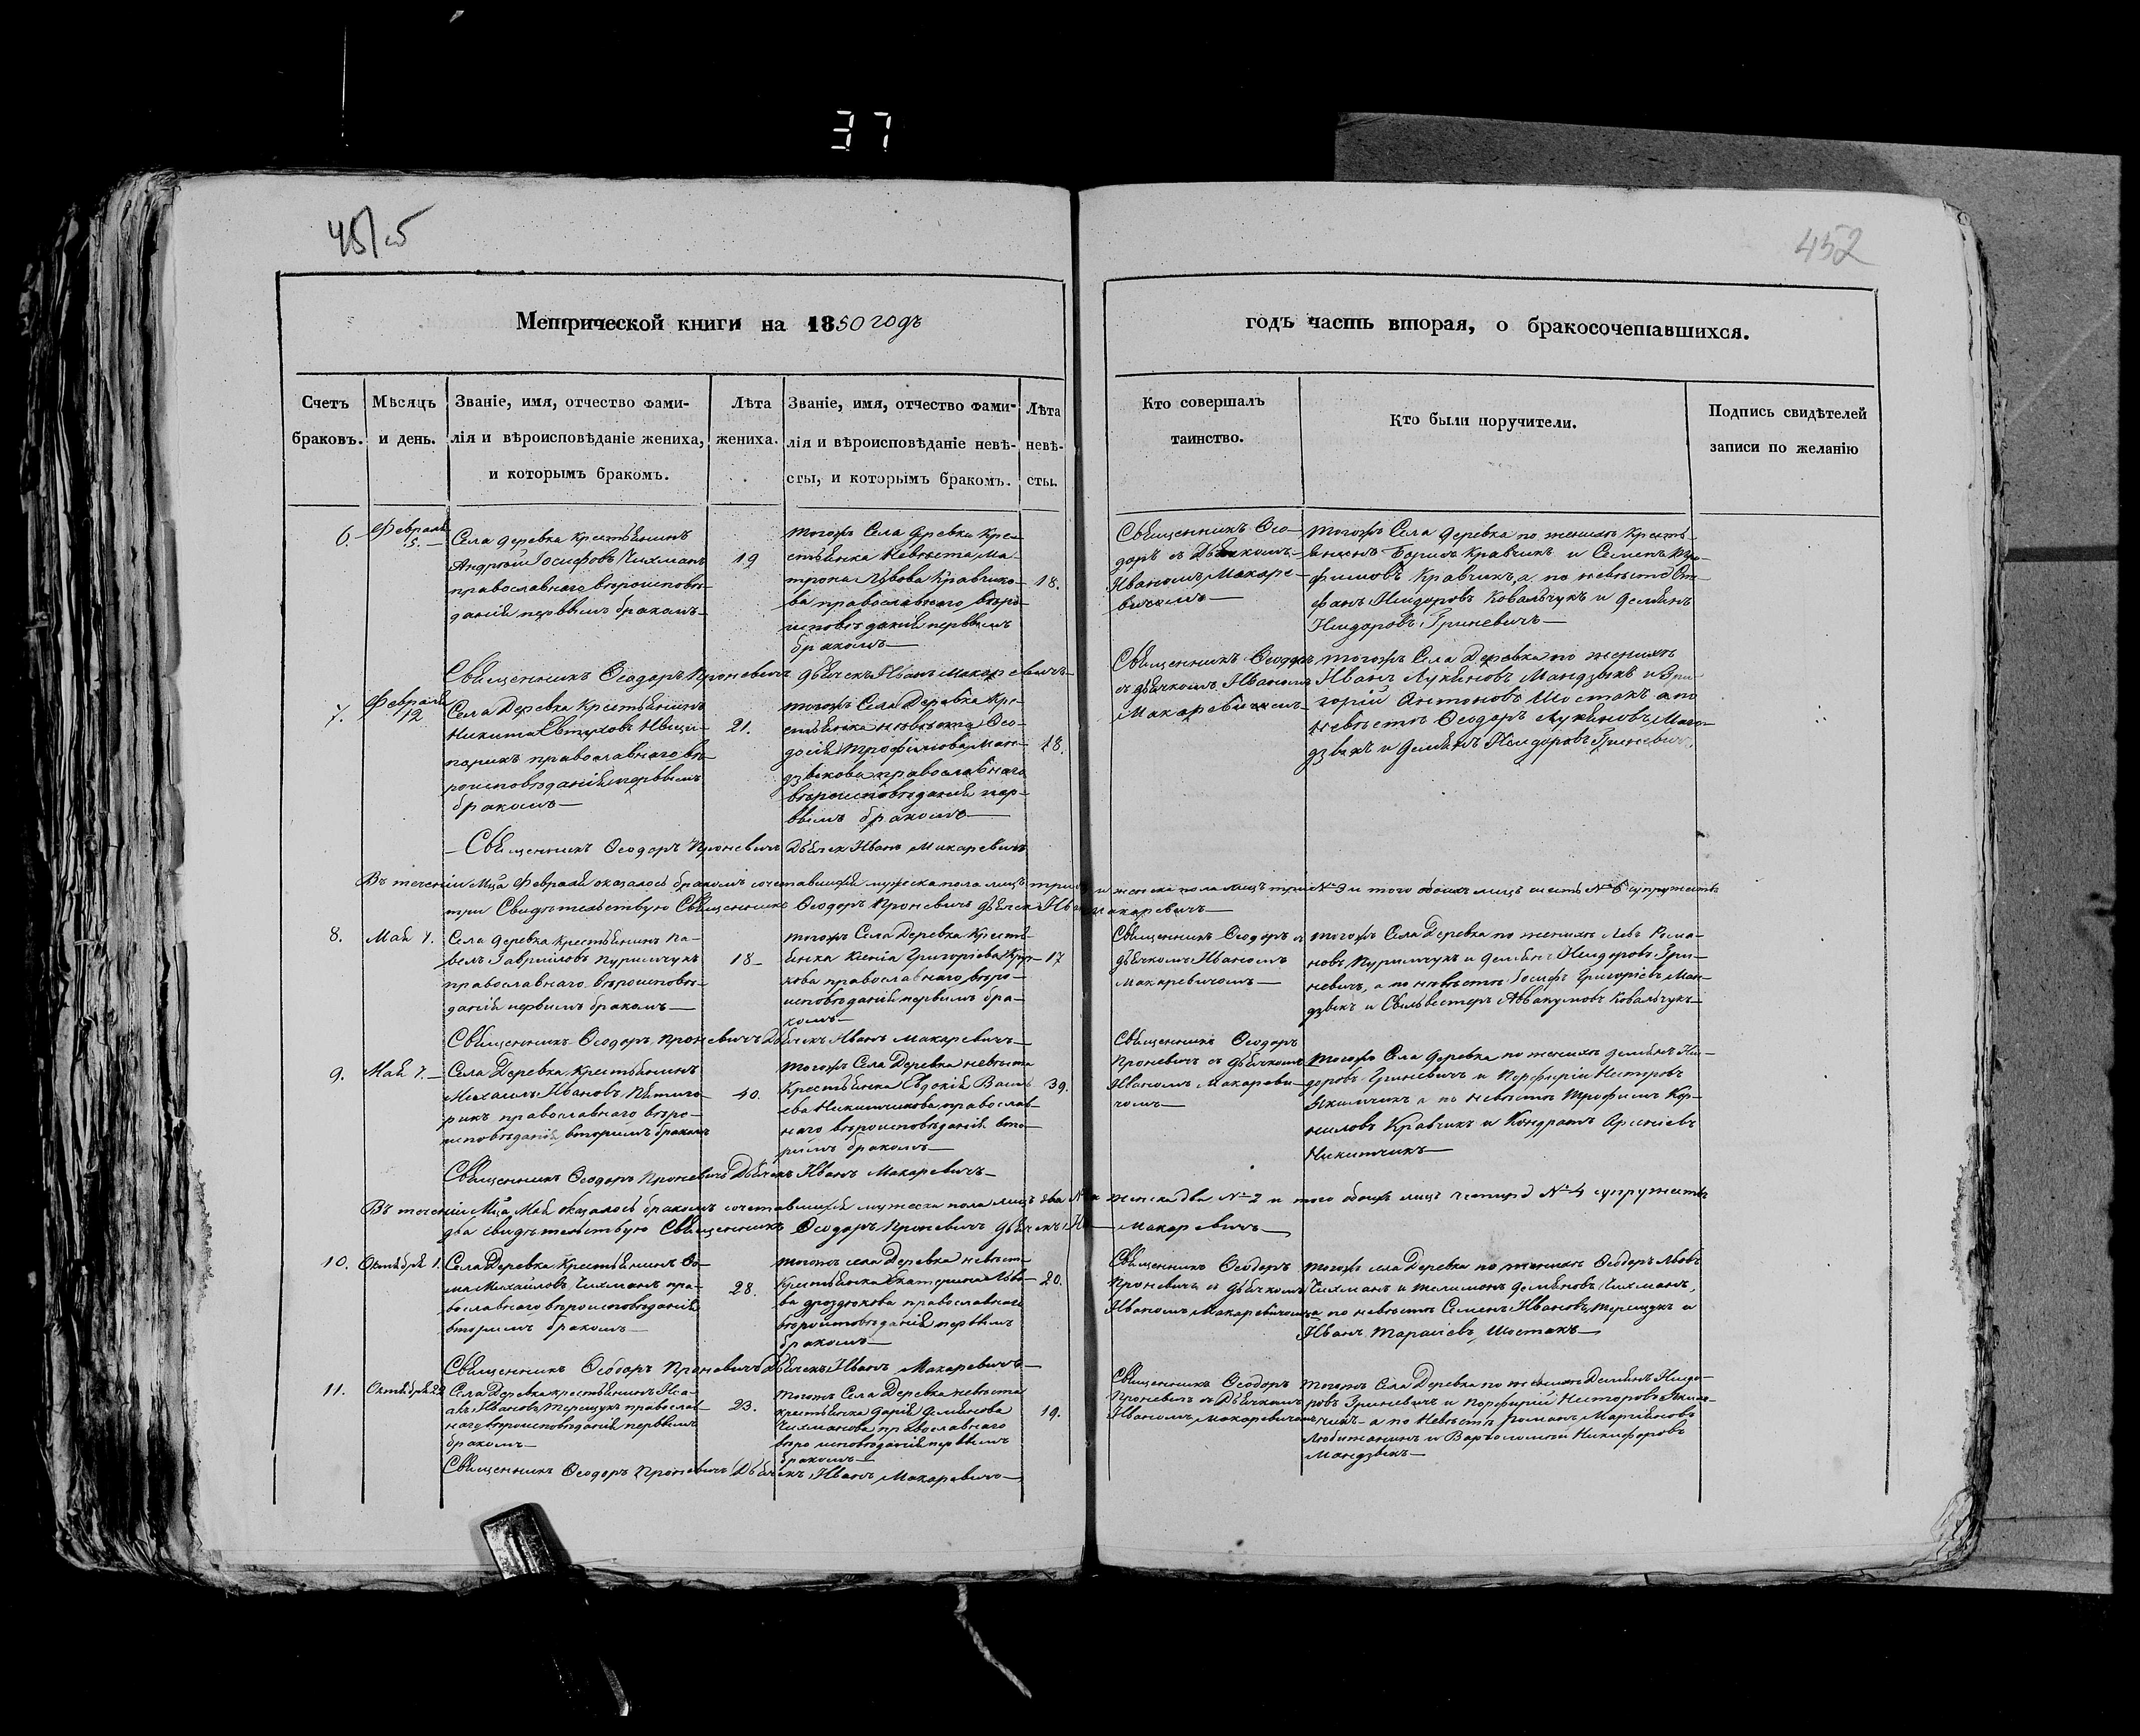 37
452
Метрической книги на 1850 годъ
годъ часть вторая, о бракосочетавшихся.
Счетъ браковъ.
Мѣсяцъ и день.
Званіе, имя, отчество фами-
лія и вѣроисповѣданіе жениха,
и которымъ бракомъ.
Лѣта
жениха.
Званіе, имя, отчество фами-
лія и вѣроисповѣданіе невѣ-
сты, и которымъ бракомъ.
Лѣта
невѣ-
сты.
Кто совершалъ
таинство.
Кто были поручители.
Подпись свидѣтелей
записи по желанію
6.
Февраля
5.
Села Деревка крестьянинъ
Андрей Іосифовъ Чихманъ
православнаго вѣроисповѣ-
данія первымъ бракомъ
19
тогожъ Села Деревки кре-
стьянка невѣста Ма-
трона Львова Кравчико-
ва православнаго вѣро-
исповѣданія первымъ
бракомъ
18.
Священникъ Ѳео-
доръ съ Дьячкомъ
Иваномъ Макаре-
вичемъ
тогожъ Села Деревка по женихѣ Кресть-
янинъ Борисъ Кравчикъ и Семенъ
Кравчикъ, а по невѣстѣ Сте-
фанъ Исидоровъ Ковальчукъ и Демьянъ
Исидоровъ Гриневичъ
Священникъ Ѳеодоръ Проневичъ Дьячекъ Иванъ Макаревичъ
7.
Февраля
12
Села Деревка Крестьянинъ
Никита Евтуховъ
православнаго вѣ-
роисповѣданія первымъ
бракомъ
21.
тогожъ Села Деревка Кре-
стьянка невѣста Ѳео-
досія Трофимова Ман-
дзыкова православнаго
вѣроисповѣданія пер-
вымъ бракомъ
18.
Священникъ Ѳеодоръ
съ дьячкомъ Иваномъ
Макаревичемъ
тогожъ Села Деревка по женихѣ
Иванъ Лукяновъ Мандзыкъ и Гри-
горій Антоновъ Шостакъ а по
невѣстѣ Ѳеодоръ Лукяновъ Ман-
дзыкъ и Демьянъ Исидоровъ Гриневичъ
Священникъ Ѳеодоръ Проневичъ Дьячекъ Иванъ Макаревичъ
Въ теченіи Мца Февраля оказалось бракомъ сочетавшихся мужеска пола лицъ три и женска пола лицъ три №3 и того обоихъ лицъ шесть №6 супружествъ
три Свидѣтельствую Священникъ Ѳеодоръ Проневичъ Дьячекъ Иванъ Макаревичъ
8.
Мая 7.
Села Деревка крестьянинъ Па-
велъ Гавриловъ Пуримчукъ
православнаго вѣроисповѣ-
данія первымъ бракомъ
18
тогожъ Села Деревка Кресть-
янка Ксенія Григоріева
православнаго вѣро-
исповѣданія первымъ бра-
комъ
17
Священникъ Ѳеодоръ съ
дьячкомъ Иваномъ
Макаревичемъ
тогожъ Села Деревка по женихѣ Левъ Рома-
новъ Пуримчукъ и Демьянъ Исидоровъ Гри-
невичъ, а по невѣстѣ Іосифъ Григоріевъ Ман-
дзыкъ и Сильвестеръ Аввакумовъ Ковальчукъ
Священникъ Ѳеодоръ Проневичъ Дьячекъ Иванъ Макаревичъ
9.
Мая 7.
Села Деревка, крестьянинъ
Михаилъ Ивановъ Пятиго-
рикъ православнаго вѣро-
исповѣданія вторымъ бракомъ
40.
тогожъ Села Деревка невѣста
Крестьянка Евдокія Василь-
ева Никитчикова православ-
наго вѣроисповѣданія вто-
рымъ бракомъ
39.
Священникъ Ѳеодоръ
Проневичъ съ дьячкомъ
Иваномъ Макареви-
чемъ
тогожъ Села Деревка по женихѣ Демьянъ Иси-
доровъ Гриневичъ и Порфирій Несторовъ
Якимчикъ а по невѣстѣ Трофимъ Кор-
ниловъ Кравчикъ и Кондратъ Арсеніевъ
Никитчикъ
Священникъ Ѳеодоръ Проневичъ Дьячекъ Иванъ Макаревичъ
Въ теченіи Мца Мая оказалось бракомъ сочетавшихся мужеска пола лицъ два женска два №2 и того обоихъ лицъ четыре №4 супружествъ
два свидѣтельствую Священникъ Ѳеодоръ Проневичъ Дьячекъ Макаревичъ
10.
Октября 1.
Села Деревка Крестьянинъ Ѳо-
ма Михайловъ Чихманъ пра-
вославнаго вѣроисповѣданія
вторымъ бракомъ
28.
тогожъ села Деревка невѣста
Крестьянка Екатерина Льво-
ва Дроздюкова православнаго
вѣроисповѣданія первымъ
бракомъ
20.
Священникъ Ѳеодоръ
Проневичъ съ дьячкомъ
Иваномъ Макаревичемъ
тогожъ села Деревка по женихѣ Ѳеодоръ Львовъ
Чихманъ и Филимонъ Демьяновъ Чихманъ,
а по невѣстѣ Семенъ Ивановъ Терещукъ и
Иванъ Тарасіевъ Шостакъ
Священникъ Ѳеодоръ Проневичъ Дьячекъ Иванъ Макаревичъ
11.
Октября 22
Села Деревка крестьянинъ Иса-
акъ Ивановъ Терещукъ православ-
наго вѣроисповѣданія первымъ
бракомъ
23.
тогожъ Села Деревка невѣста
крестьянка Дарія Демьянова
Чихманова православнаго
вѣроисповѣданія первымъ
бракомъ
19.
Священникъ Ѳеодоръ
Проневичъ съ Дьячкомъ
Иваномъ Макаревичемъ
тогожъ Села Деревка по женихѣ Демьянъ Исидо-
ровъ Гриневичъ и Порфирій Несторовъ Яким-
чикъ а по Невѣстѣ Романъ Мартиновъ
Любитанинъ и Варѳоломей Никифоровъ
Мандзыкъ
Священникъ Ѳеодоръ Проневичъ Дьячекъ Иванъ Макаревичъ